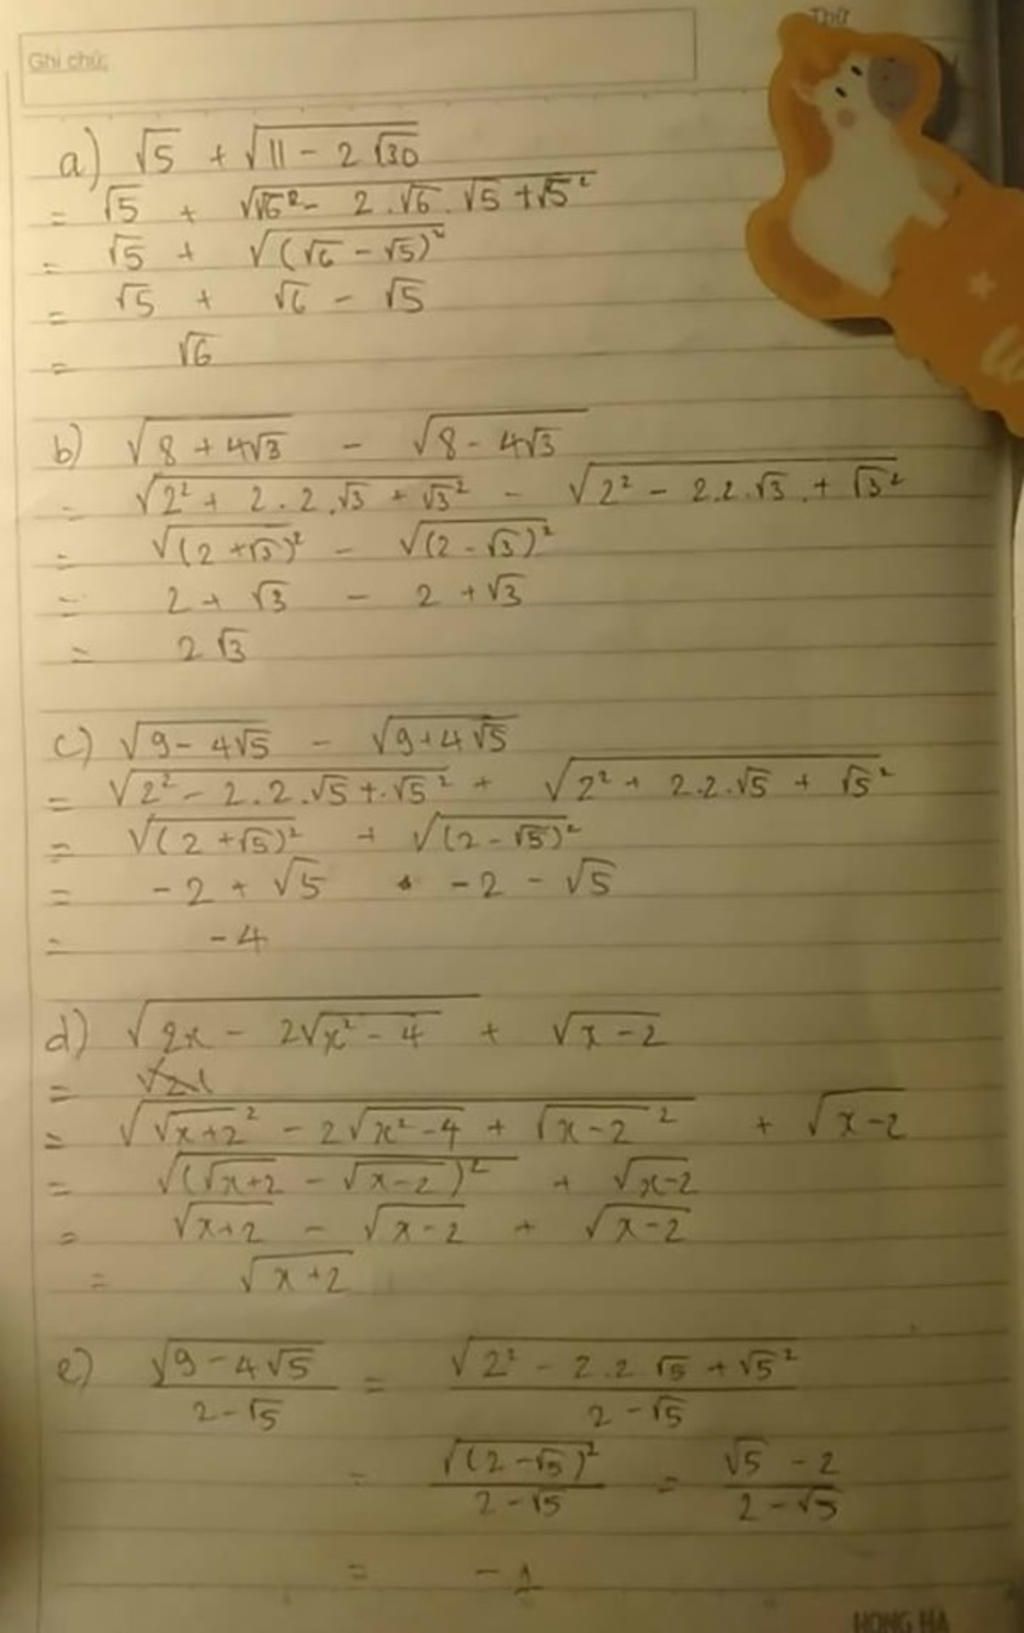 Thứ
Ghi chú:
a) √5 + √(11 - 2√30)
= √5 + √(√6² - 2.√6.√5 + √5²)
= √5 + √((√6 - √5)²)
= √5 + √6 - √5
= √6
b) √(8 + 4√3) - √(8 - 4√3)
= √(2² + 2.2.√3 + √3²) - √(2² - 2.2.√3 + √3²)
= √((2 + √3)²) - √((2 - √3)²)
= 2 + √3 - 2 + √3
= 2√3
c) √(9 - 4√5) - √(9 + 4√5)
= √(2² - 2.2.√5 + √5²) + √(2² + 2.2.√5 + √5²)
= √((2 + √5)²) + √((2 - √5)²)
= -2 + √5 -2 - √5
= -4
d) √(2x - 2√(x² - 4)) + √(x - 2)
=
= √(√(x+2)² - 2√(x² - 4) + √(x - 2)²) + √(x - 2)
= √((√(x+2) - √(x-2))²) + √(x-2)
= √(x+2) - √(x-2) + √(x-2)
= √(x+2)
e) √(9 - 4√5) / (2 - √5) = √(2² - 2.2√5 + √5²) / (2 - √5)
= √((2 - √5)²) / (2 - √5) = (√5 - 2) / (2 - √5)
= -1
HONG HA